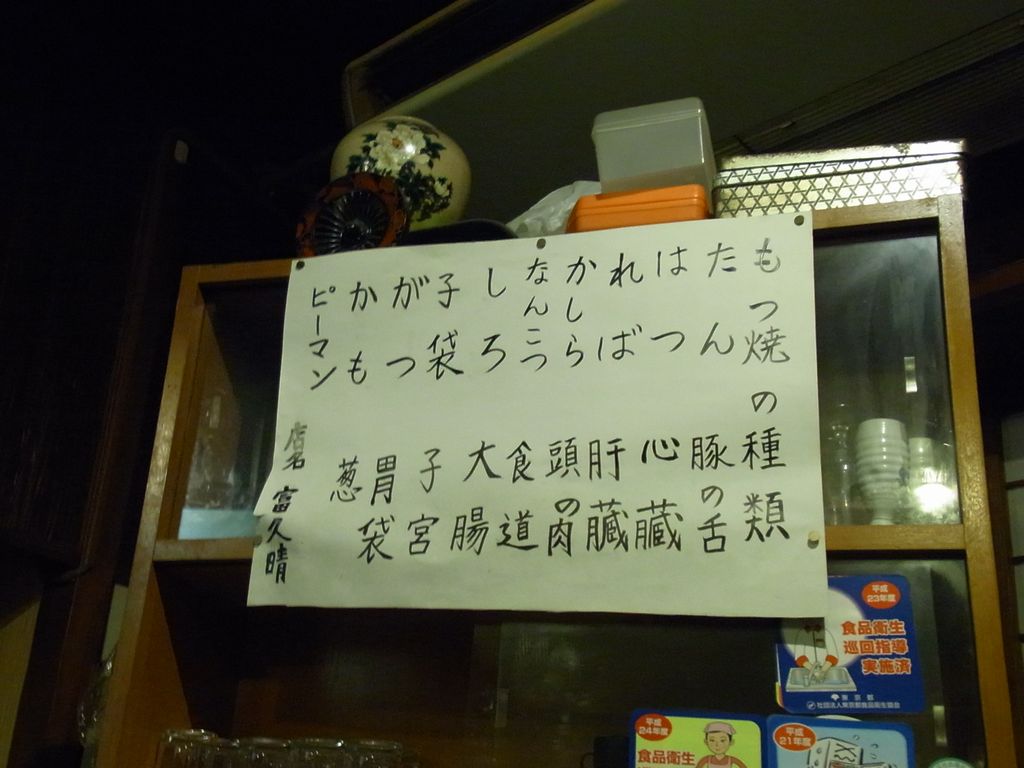 もつ焼の種類
たん 豚の舌
はつ 心臓
れば 肝臓
かしら 頭の肉
なんこつ 食道
しろ 大腸
子袋 子宮
がつ 胃袋
かも 葱
ピーマン
店名 富久晴
平成
23年度
食品衛生
巡回指導
実施済
東京都
社団法人東京都食品衛生協会
平成
24年度
食品衛生
平成
21年度